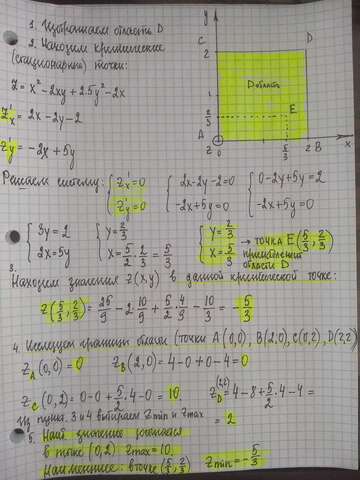 1. Изображаем область D
2. Находим критические
(стационарные) точки:
Z = x² - 2xy + 2.5y² - 2x
Z'x = 2x - 2y - 2
Z'y = -2x + 5y
y
C
2
D
D область
2/3
E
A
2
0
5/3
2
B
x
Решаем систему: { Z'x = 0 { 2x - 2y - 2 = 0 { 0 - 2y + 5y = 2
Z'y = 0 -2x + 5y = 0 -2x + 5y = 0
{ 3y = 2 { y = 2/3 { y = 2/3 → точка E (5/3; 2/3)
2x = 5y x = 5/2 · 2/3 = 5/3 x = 5/3 принадлежит
области D
3.
Находим значения Z(x,y) в данной критической точке:
Z(5/3; 2/3) = 25/9 - 2 10/9 + 5/2 · 4/9 - 10/3 = - 5/3
4. Исследуем границы области (точки A(0,0), B(2,0), C(0,2), D(2,2)
Z A (0,0) = 0 Z B (2,0) = 4 - 0 + 0 - 4 = 0
Z C (0,2) = 0 - 0 + 5/2 · 4 - 0 = 10 Z D (2,2) = 4 - 8 + 5/2 · 4 - 4 =
= 2
Из пункт. 3 и 4 выбираем Zmin и Zmax
5. Наиб значение достигается
в точке (0,2) Zmax = 10.
Наименьшее: в точке (5/3, 2/3) Zmin = - 5/3